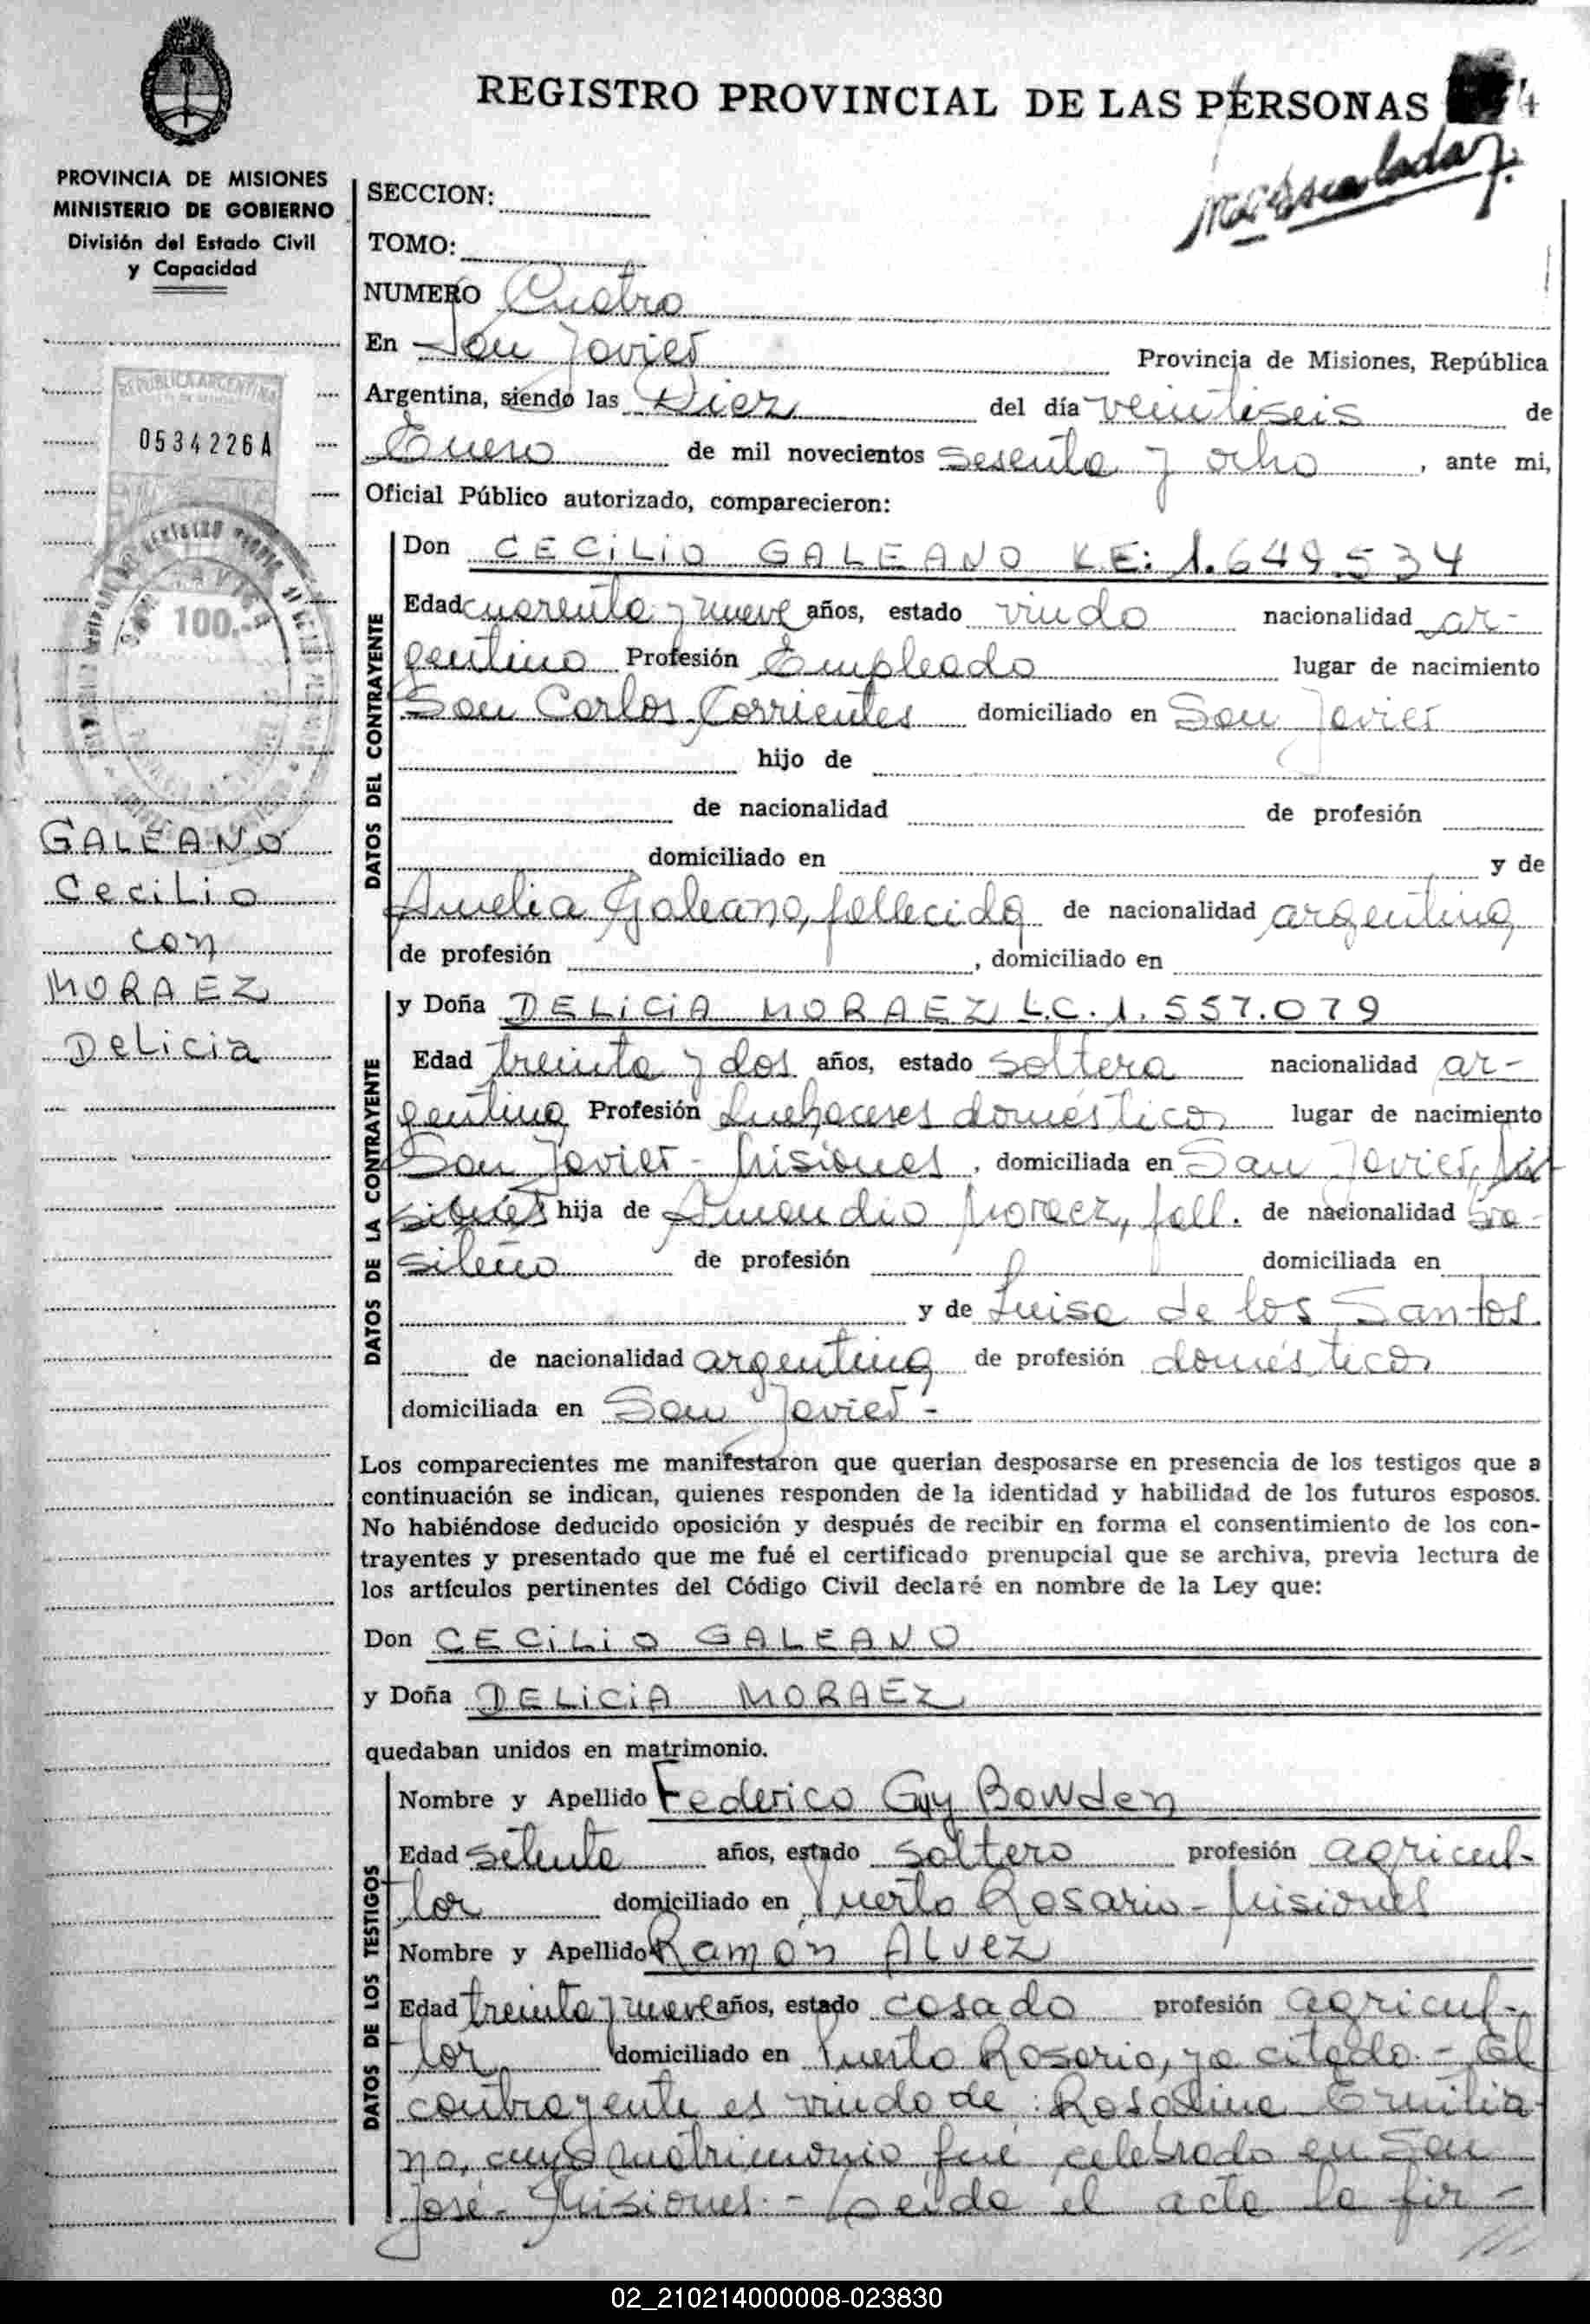 REGISTRO PROVINCIAL DE LAS PERSONAS
PROVINCIA DE MISIONES
MINISTERIO DE GOBIERNO
División del Estado Civil
y Capacidad
SECCION:
TOMO:
NUMERO Cuatro
En San Javier Provincia de Misiones, República
Argentina, siendo las Diez del día veintiseis de
Enero de mil novecientos sesenta y ocho, ante mi,
Oficial Público autorizado, comparecieron:
REPUBLICA ARGENTINA
0534226A
100.-
GALEANO
Cecilio
con
MORAEZ
Delicia
DATOS DEL CONTRAYENTE
Don CECILIO GALEANO L.E: 1.649.534
Edad cuarenta y nueve años, estado viudo nacionalidad ar-
gentino Profesión Empleado lugar de nacimiento
San Carlos Corrientes domiciliado en San Javier
hijo de
de nacionalidad de profesión
domiciliado en y de
Amelia Galeano, fallecida de nacionalidad argentina
de profesión , domiciliado en
DATOS DE LA CONTRAYENTE
y Doña DELICIA MORAEZ L.C. 1.557.079
Edad treinta y dos años, estado soltera nacionalidad ar-
gentina Profesión Quehaceres domésticos lugar de nacimiento
San Javier - Misiones, domiciliada en San Javier, Mi-
siones hija de Amandio Moraez, fall. de nacionalidad bra-
sileño de profesión domiciliada en
y de Luisa de los Santos
de nacionalidad argentina de profesión domésticos
domiciliada en San Javier -
Los comparecientes me manifestaron que querían desposarse en presencia de los testigos que a
continuación se indican, quienes responden de la identidad y habilidad de los futuros esposos.
No habiéndose deducido oposición y después de recibir en forma el consentimiento de los con-
trayentes y presentado que me fué el certificado prenupcial que se archiva, previa lectura de
los artículos pertinentes del Código Civil declaré en nombre de la Ley que:
Don CECILIO GALEANO
y Doña DELICIA MORAEZ
quedaban unidos en matrimonio.
DATOS DE LOS TESTIGOS
Nombre y Apellido Federico Guy Bowden
Edad setenta años, estado soltero profesión agricul-
tor domiciliado en Puerto Rosario - Misiones
Nombre y Apellido Ramon Alvez
Edad treinta y nueve años, estado casado profesión agricul-
tor domiciliado en Puerto Rosario, ya citado. - El
contrayente es viudo de: Rosalina Emilia-
no, cuyo matrimonio fué celebrado en San
José - Misiones. - Leída el acta la fir-
02_210214000008-023830